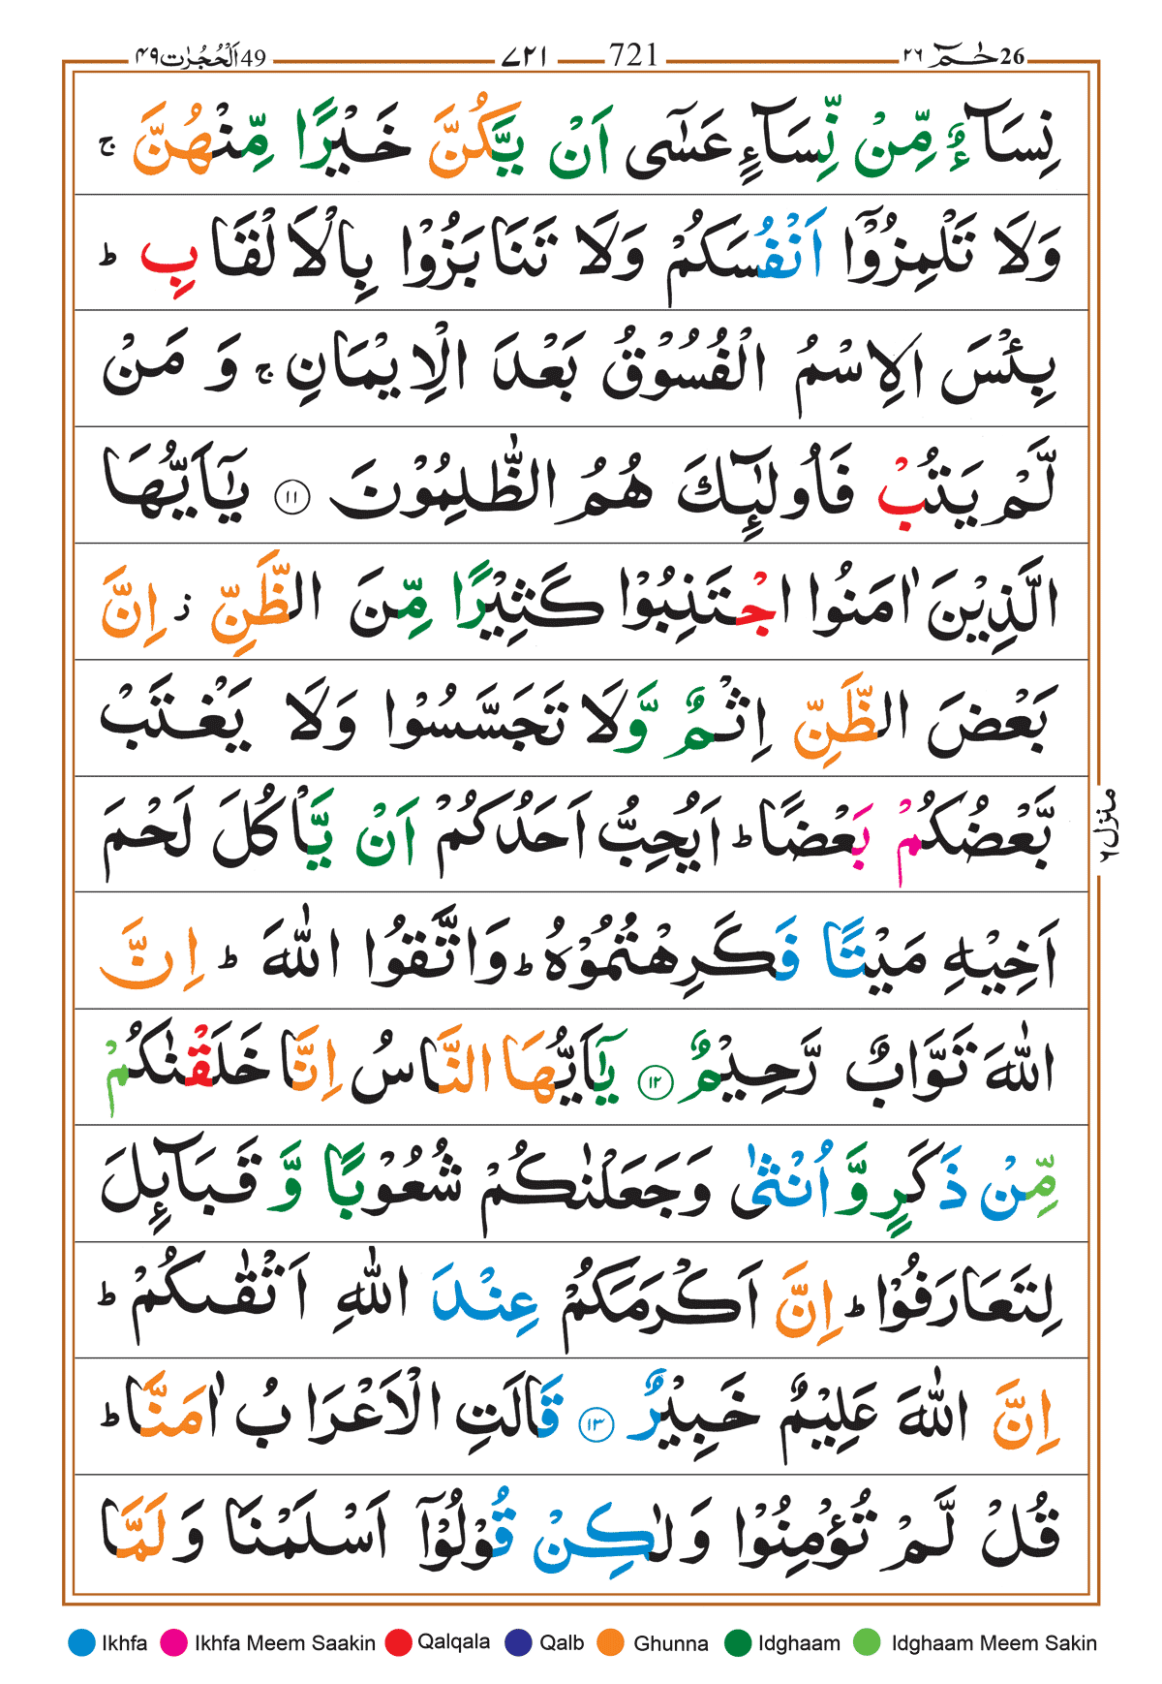 اَلْحُجُرٰت ۴۹ 49 ۷۲۱ 721 حٰمٓ ۲۶ 26
نِسَآءٌ مِّنْ نِّسَآءٍ عَسٰٓى اَنْ يَّكُنَّ خَيْرًا مِّنْهُنَّ ۚ
وَلَا تَلْمِزُوْٓا اَنْفُسَكُمْ وَلَا تَنَابَزُوْا بِالْاَلْقَابِ ؕ
بِئْسَ الِاسْمُ الْفُسُوْقُ بَعْدَ الْاِيْمَانِ ۚ وَ مَنْ
لَّمْ يَتُبْ فَاُولٰٓئِكَ هُمُ الظّٰلِمُوْنَ ۱۱ يٰٓاَيُّهَا
الَّذِيْنَ اٰمَنُوا اجْتَنِبُوْا كَثِيْرًا مِّنَ الظَّنِّ ز اِنَّ
بَعْضَ الظَّنِّ اِثْمٌ وَّلَا تَجَسَّسُوْا وَلَا يَغْتَبْ
بَّعْضُكُمْ بَعْضًا ؕ اَيُحِبُّ اَحَدُكُمْ اَنْ يَّاْكُلَ لَحْمَ
اَخِيْهِ مَيْتًا فَكَرِهْتُمُوْهُ ؕ وَاتَّقُوا اللّٰهَ ؕ اِنَّ
اللّٰهَ تَوَّابٌ رَّحِيْمٌ ۱۲ يٰٓاَيُّهَا النَّاسُ اِنَّا خَلَقْنٰكُمْ
مِّنْ ذَكَرٍ وَّ اُنْثٰى وَجَعَلْنٰكُمْ شُعُوْبًا وَّ قَبَآئِلَ
لِتَعَارَفُوْا ؕ اِنَّ اَكْرَمَكُمْ عِنْدَ اللّٰهِ اَتْقٰىكُمْ ؕ
اِنَّ اللّٰهَ عَلِيْمٌ خَبِيْرٌ ۱۳ قَالَتِ الْاَعْرَابُ اٰمَنَّا ؕ
قُلْ لَّمْ تُؤْمِنُوْا وَلٰكِنْ قُوْلُوْٓا اَسْلَمْنَا وَ لَمَّا
منزل ۶
Ikhfa Ikhfa Meem Saakin Qalqala Qalb Ghunna Idghaam Idghaam Meem Sakin